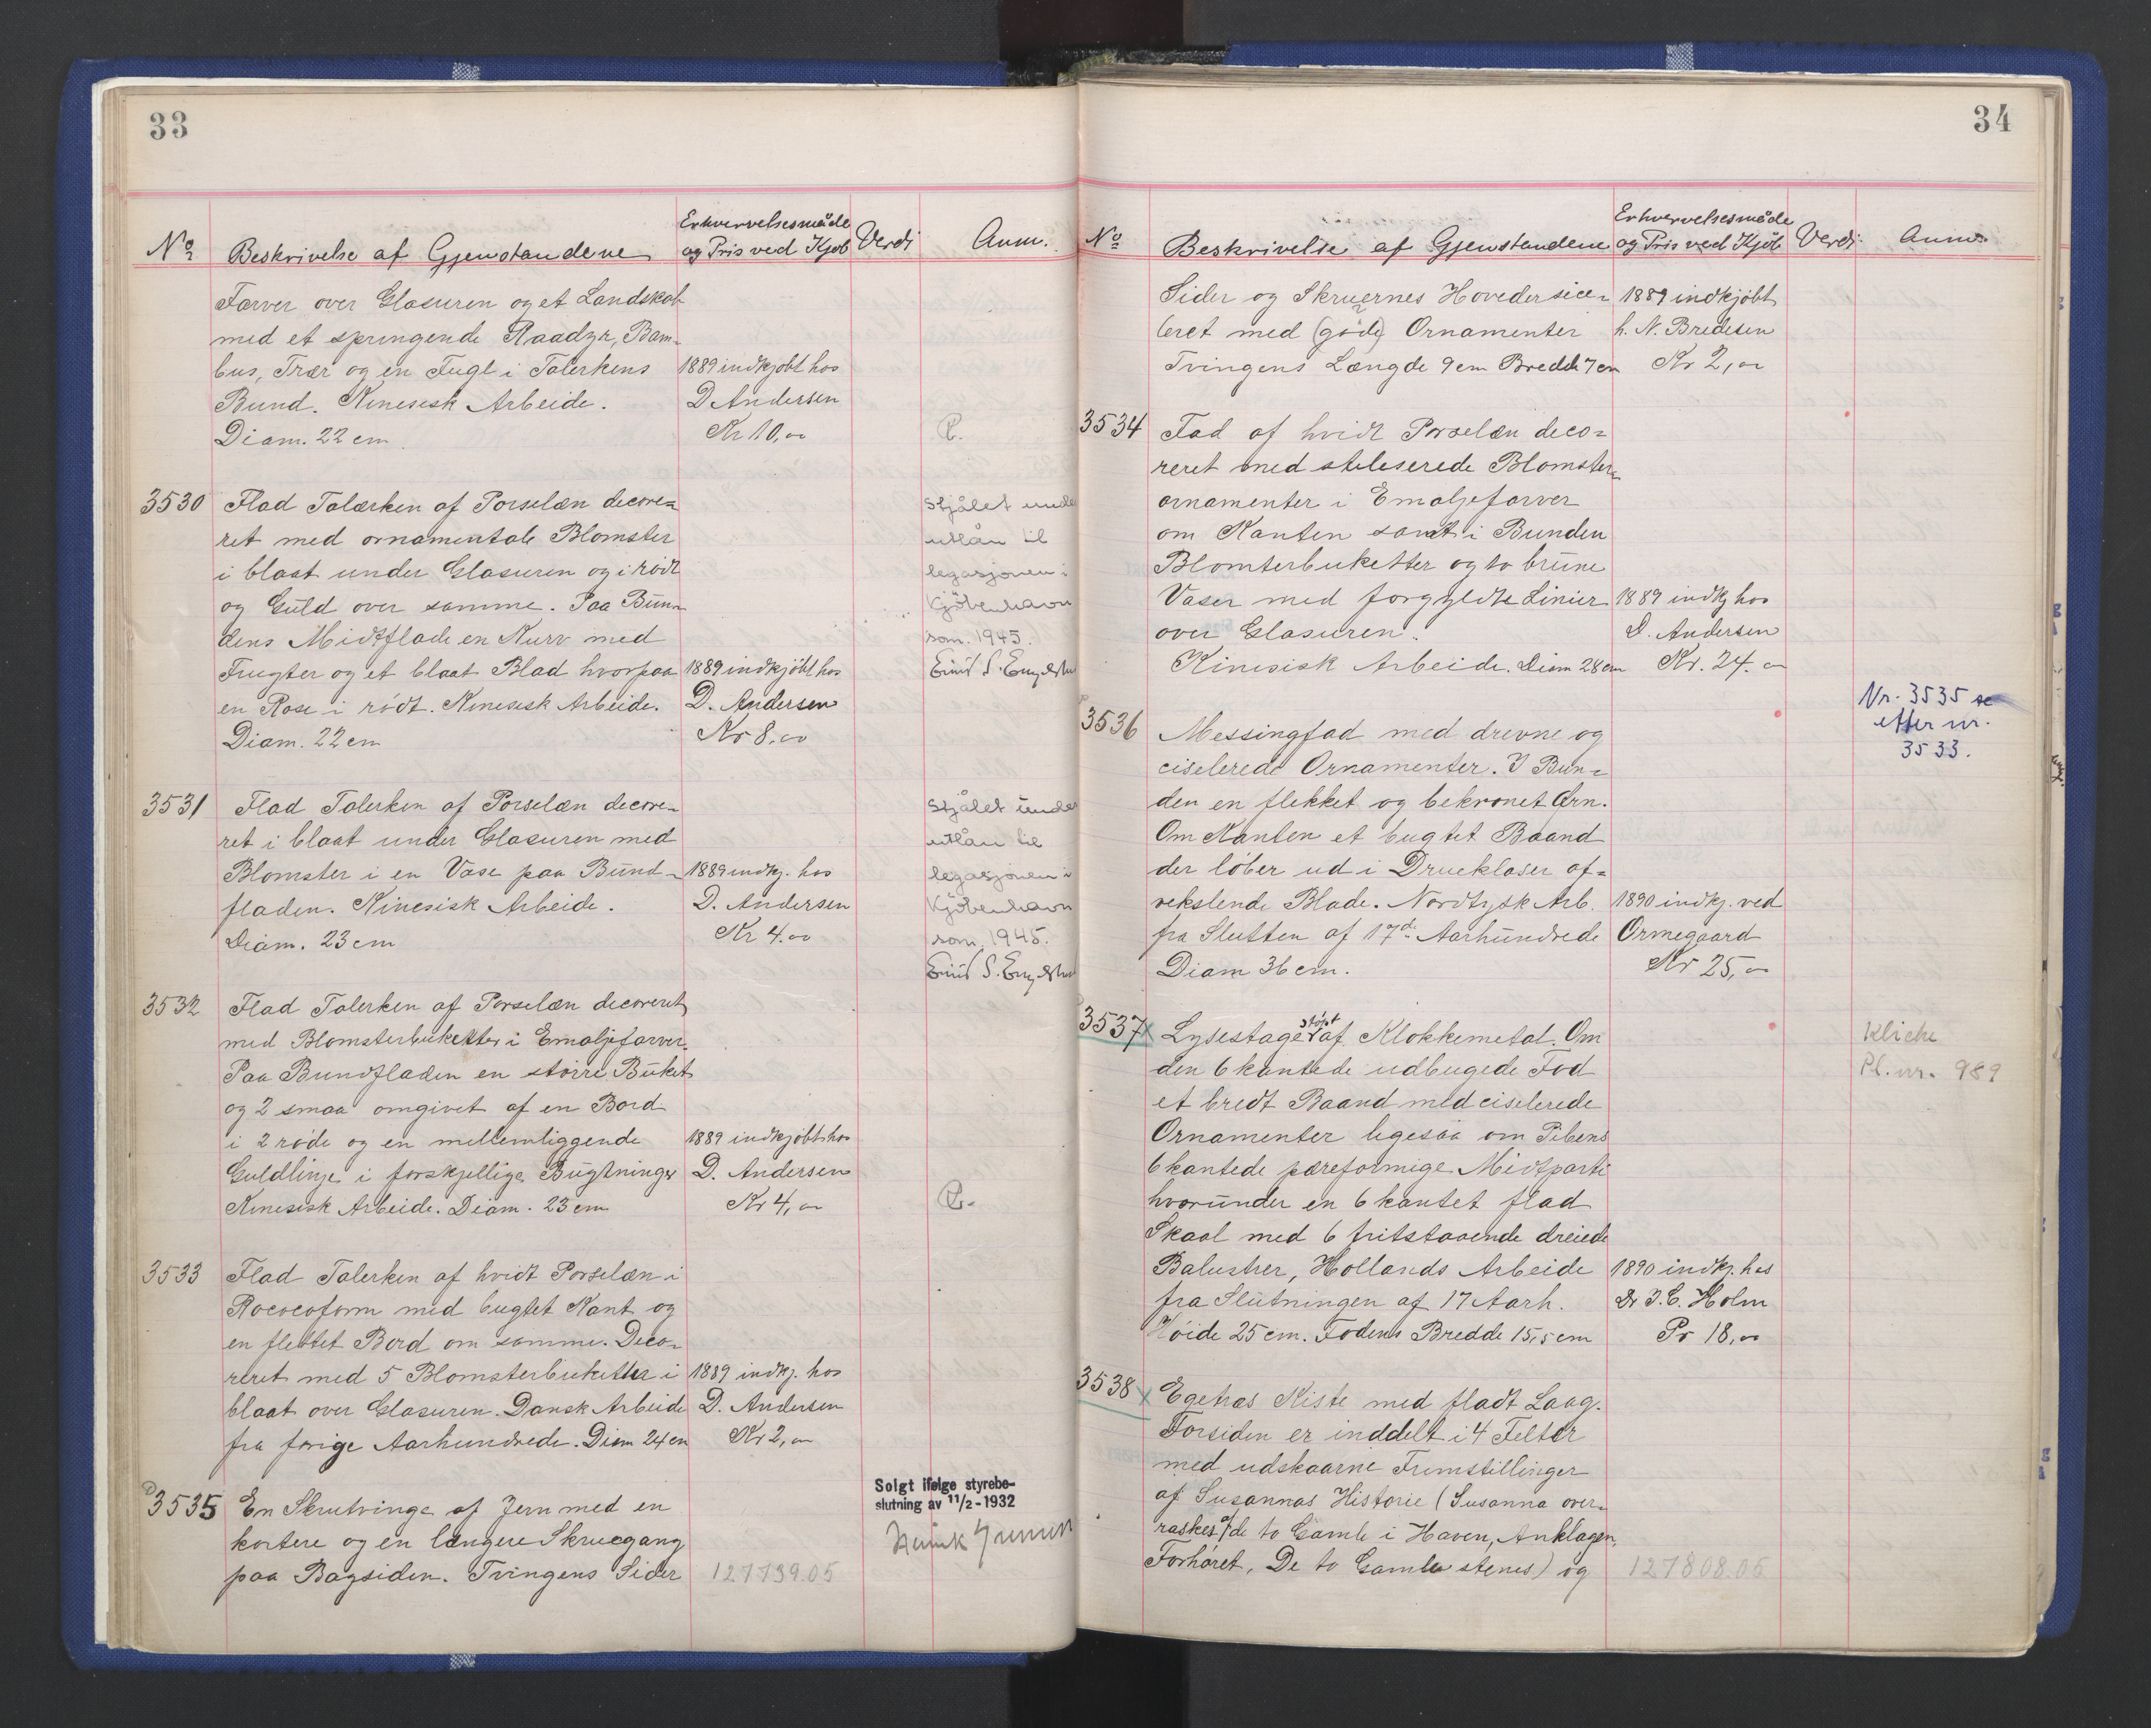 33
No
Beskrivelse af Gjenstandene
Erhvervelsesmåde
og Pris ved Kjøb
Verdi
Anm.
Farver over Glasuren og et Landskab
med et springende Raadyr, Bam-
bus, Trær og en Fugl i Talerkens
1889 indkjøbt hos
Bund. Kinesisk Arbeide.
D Andersen
Diam. 22 cm
Kr 10,00
P.
3530
Flad Talærken af Porselæn decore-
ret med ornamentale Blomster
i blaat under Glasuren og i rødt
og Guld over samme. Paa Bun-
dens Midtflade en Kurv med
Frugter og et blaat Blad hvorpaa
1889 indkjøbt hos
en Rose i rødt. Kinesisk Arbeide.
D. Andersen
Diam. 22 cm
Kr 8,00
Stjålet unde
utlån til
legasjonen i
Kjøbenhavn
som. 1945.
3531
Flad Talerken af Porselæn decore-
ret i blaat under Glasuren med
Blomster i en Vase paa Bund-
1889 indkj. hos
fladen. Kinesisk Arbeide.
D. Andersen
Diam. 23 cm
Kr 4.00
Stjålet under
utlån til
legasjonen i
Kjøbenhavn
som. 1945.
3532
Flad Talerken af Porselæn decoreret
med Blomsterbuketter i Emaljefarver.
Paa Bundfladen en større Buket
og 2 smaa omgivet af en Bord
i 2 røde og en mellemliggende
1889 indkjøbt hos
Guldlinje i forskjellige Bugtninger
D. Andersen
Kinesisk Arbeide. Diam. 23 cm
Kr 4,00
P.
3533
Flad Talerken af hvidt Porselæn i
Rococoform med bugtet Kant og
en flettet Bord om samme. Deco-
reret med 5 Blomsterbuketter i
1889 indkj. hos
blaat over Glasuren. Dansk Arbeide
D. Andersen
fra forige Aarhundrede. Diam 24 cm
Kr 2,00
3535
En Skrutvinge af Jern med en
kortere og en længere Skruegang
paa Bagsiden. Tvingens Sider
127739.05
Solgt ifølge styrebe-
slutning av 11/2-1932
34
No
Beskrivelse af Gjenstandene
Erhvervelsesmåde
og Pris ved Kjøb
Verdi
Anm.
Sider og Skruernes Hoveder sice-
1889 indkjøbt
leret med (gode) Ornamenter
h. N. Bredesen
Tvingens Længde 9 cm Bredde 7 cm
Kr 2,00
3534
Fad af hvidt Porselæn deco-
reret med stiliserede Blomster-
ornamenter i Emaljefarver
om Kanten samt i Bunden
Blomterbuketter og to brune
Vaser med forgyldte Linier
1889 indkj hos
over Glasuren.
D. Andersen
Kinesisk Arbeide. Diam 28 cm
Kr. 24.00
Nr. 3535 se
efter nr.
3533.
3536
Messingfad med drevne og
ciselerede Ornamenter. I Bun-
den en flekket og bekronet Ørn.
Om Kanten et bugtet Baand
der løber ud i Drueklaser af-
vekslende Blade. Nordtysk Arb.
1890 indkj. ved
fra Slutten af 17de Aarhundrede
Ormegaard
Diam 36 cm.
Kr 25,00
3537 x
Lysestage støpt af Klokkemetal. Om
den 6 kantede udbugede Fod
et bredt Baand med ciselerede
Ornamenter ligesaa om Pibens
6 kantede pæreformige Midtparti
hvorunder en 6 kantet flad
Skaal med 6 fritstaaende dreiede
Balustrer, Hollands Arbeide
1890 indkj. hos
fra Slutningen af 17 Aarh.
Dr J. C. Holm
Høide 25 cm. Fodens Bredde 15,5 cm
Pr 18,00
Kliche
Pl. nr. 989
3538 x
Egetræs Kiste med fladt Laag.
Forsiden er inddelt i 4 Felter
med udskaarne Fremstillinger
af Susannas Historie (Susanna over-
raskes af de to Gamle i Haven, Anklagen,
Forhøret, De to Gamle stenes) og
127808.05